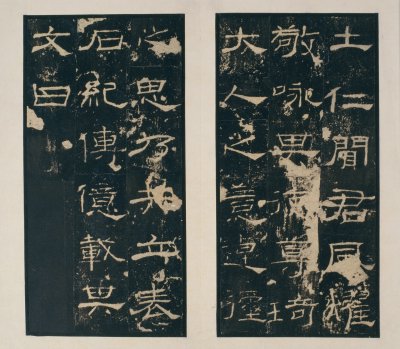 士仁聞君風燿
敬咏其德尊琦
大人之意逴彌
之思乃共立表
石紀傳億載其
文曰